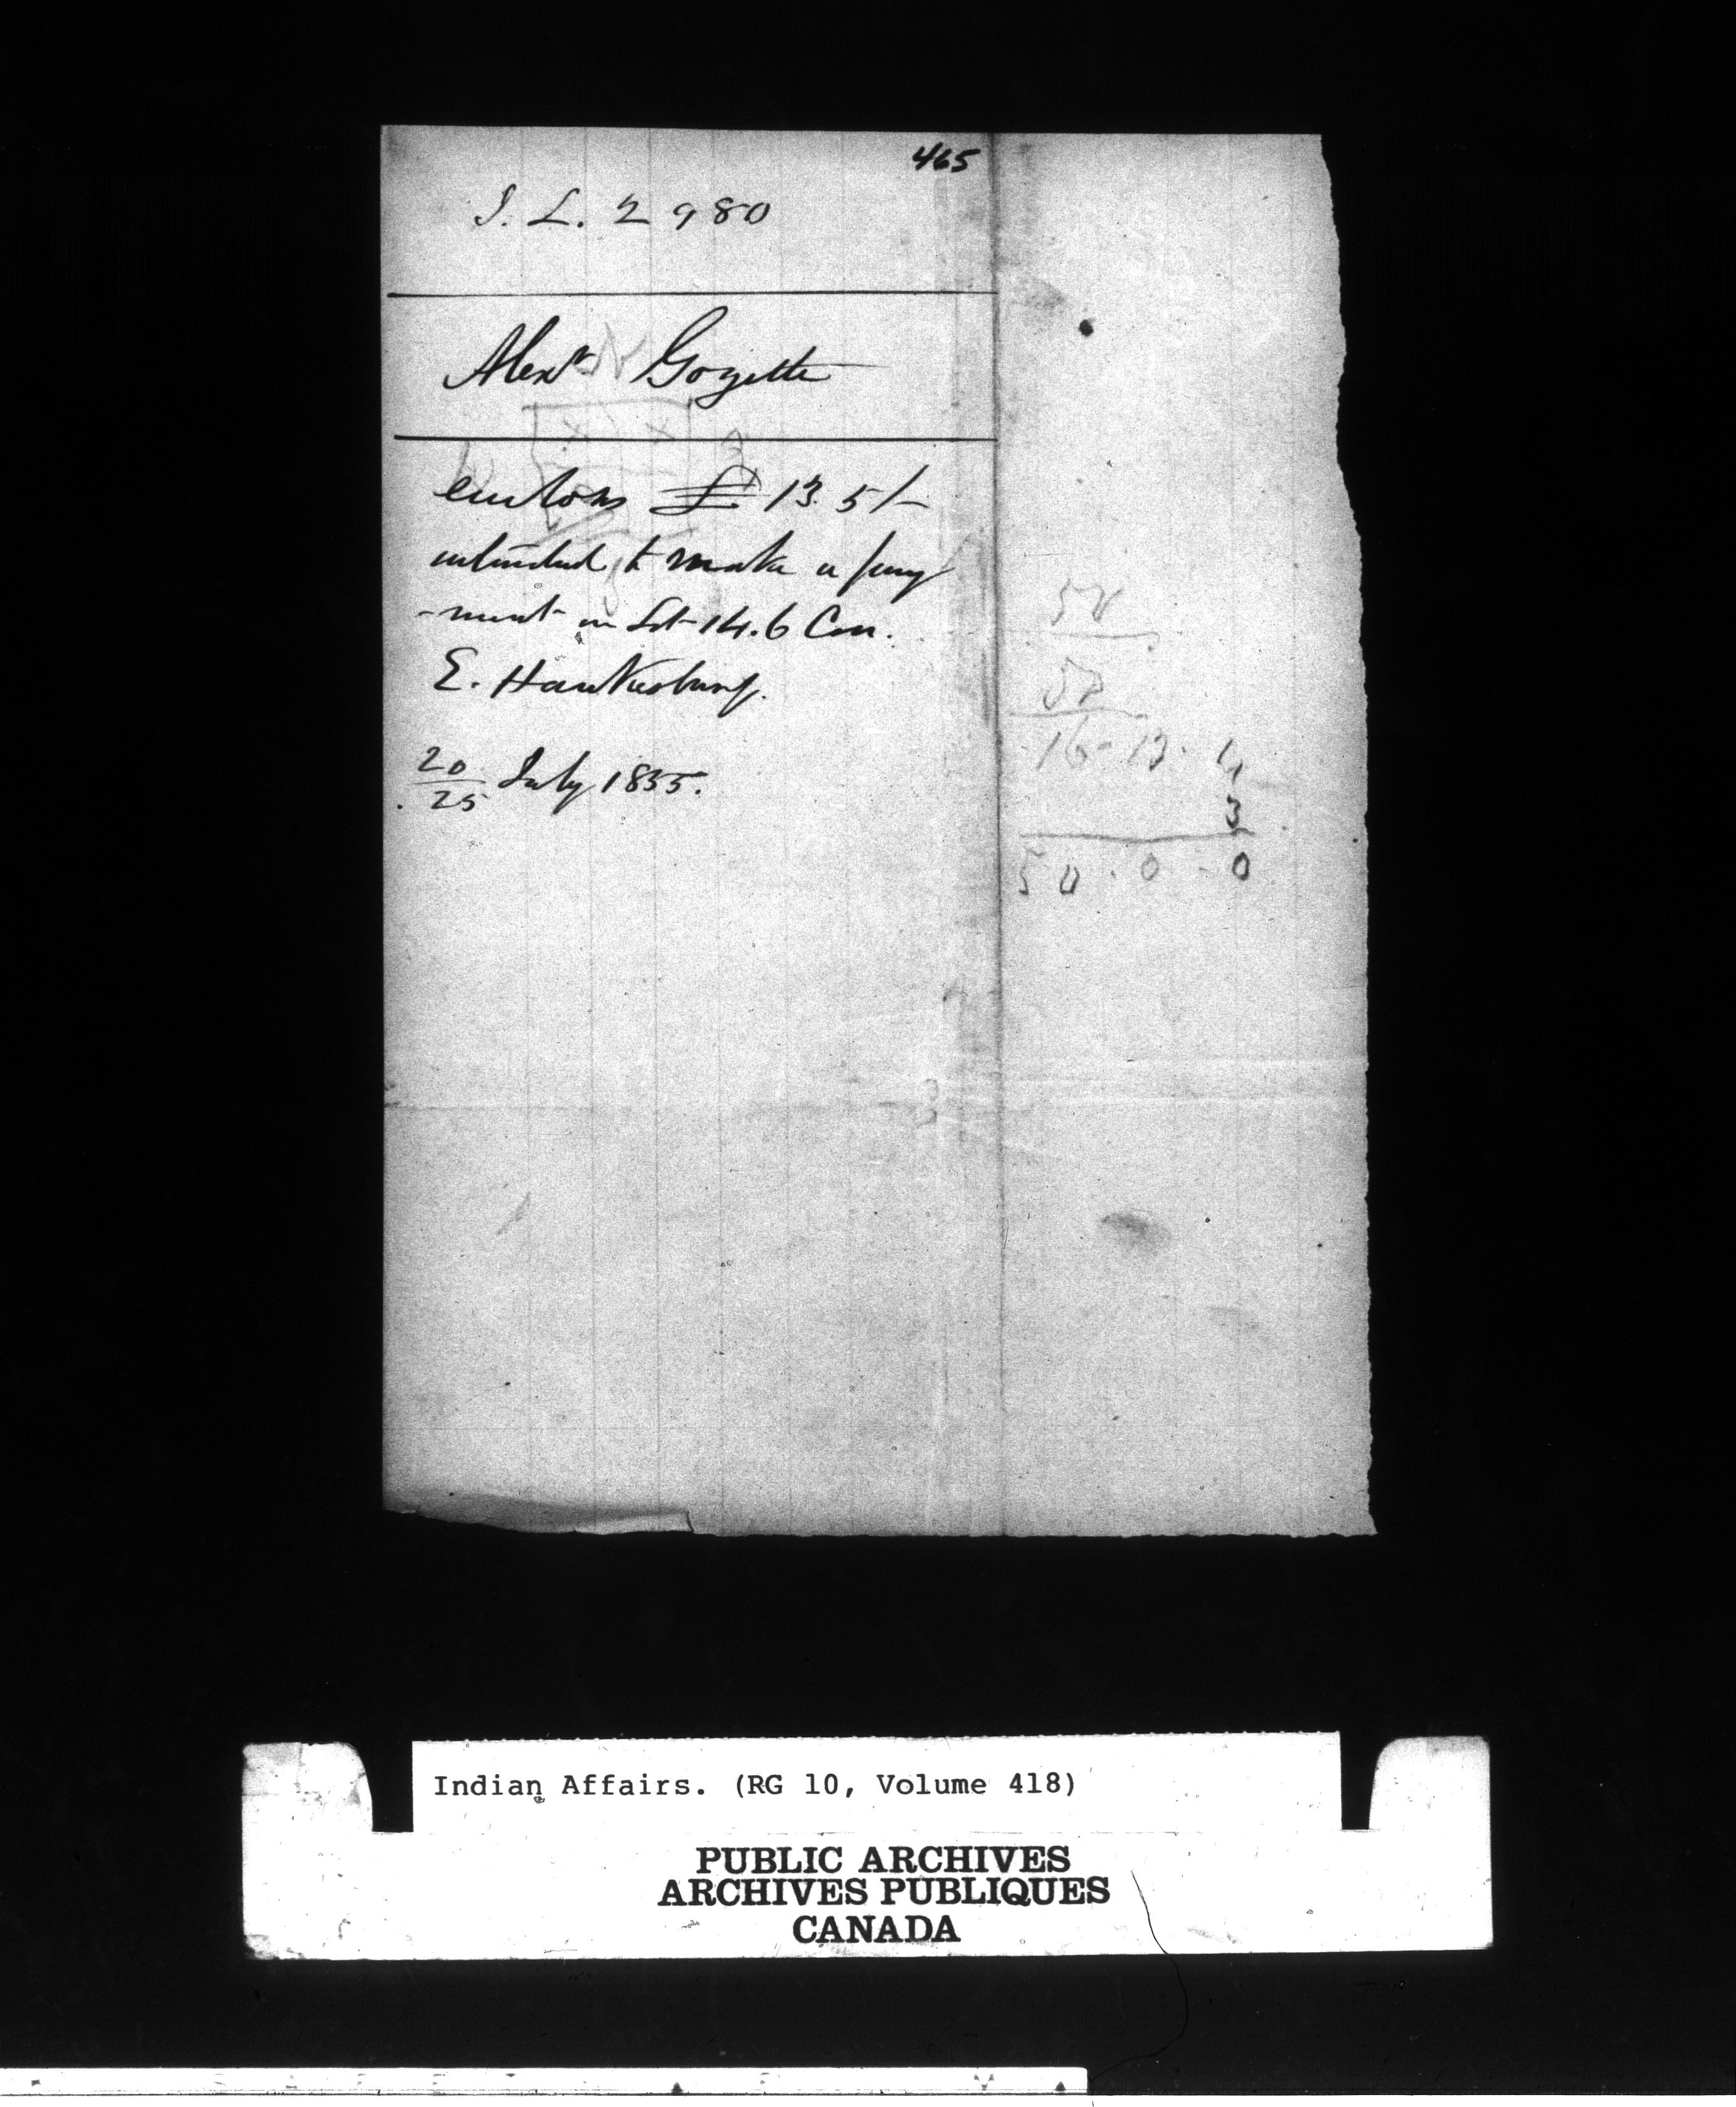 465
I. L. 2980
Alexr Gozette
encloses £13.5/-
intended to make a pay
-ment on Lot 14.6 Con.
E. Hawkesbury.
20
25 July 1855.
52
52
16-13-4
3
50.0-0
Indian Affairs. (RG 10, Volume 418)
PUBLIC ARCHIVES
ARCHIVES PUBLIQUES
CANADA